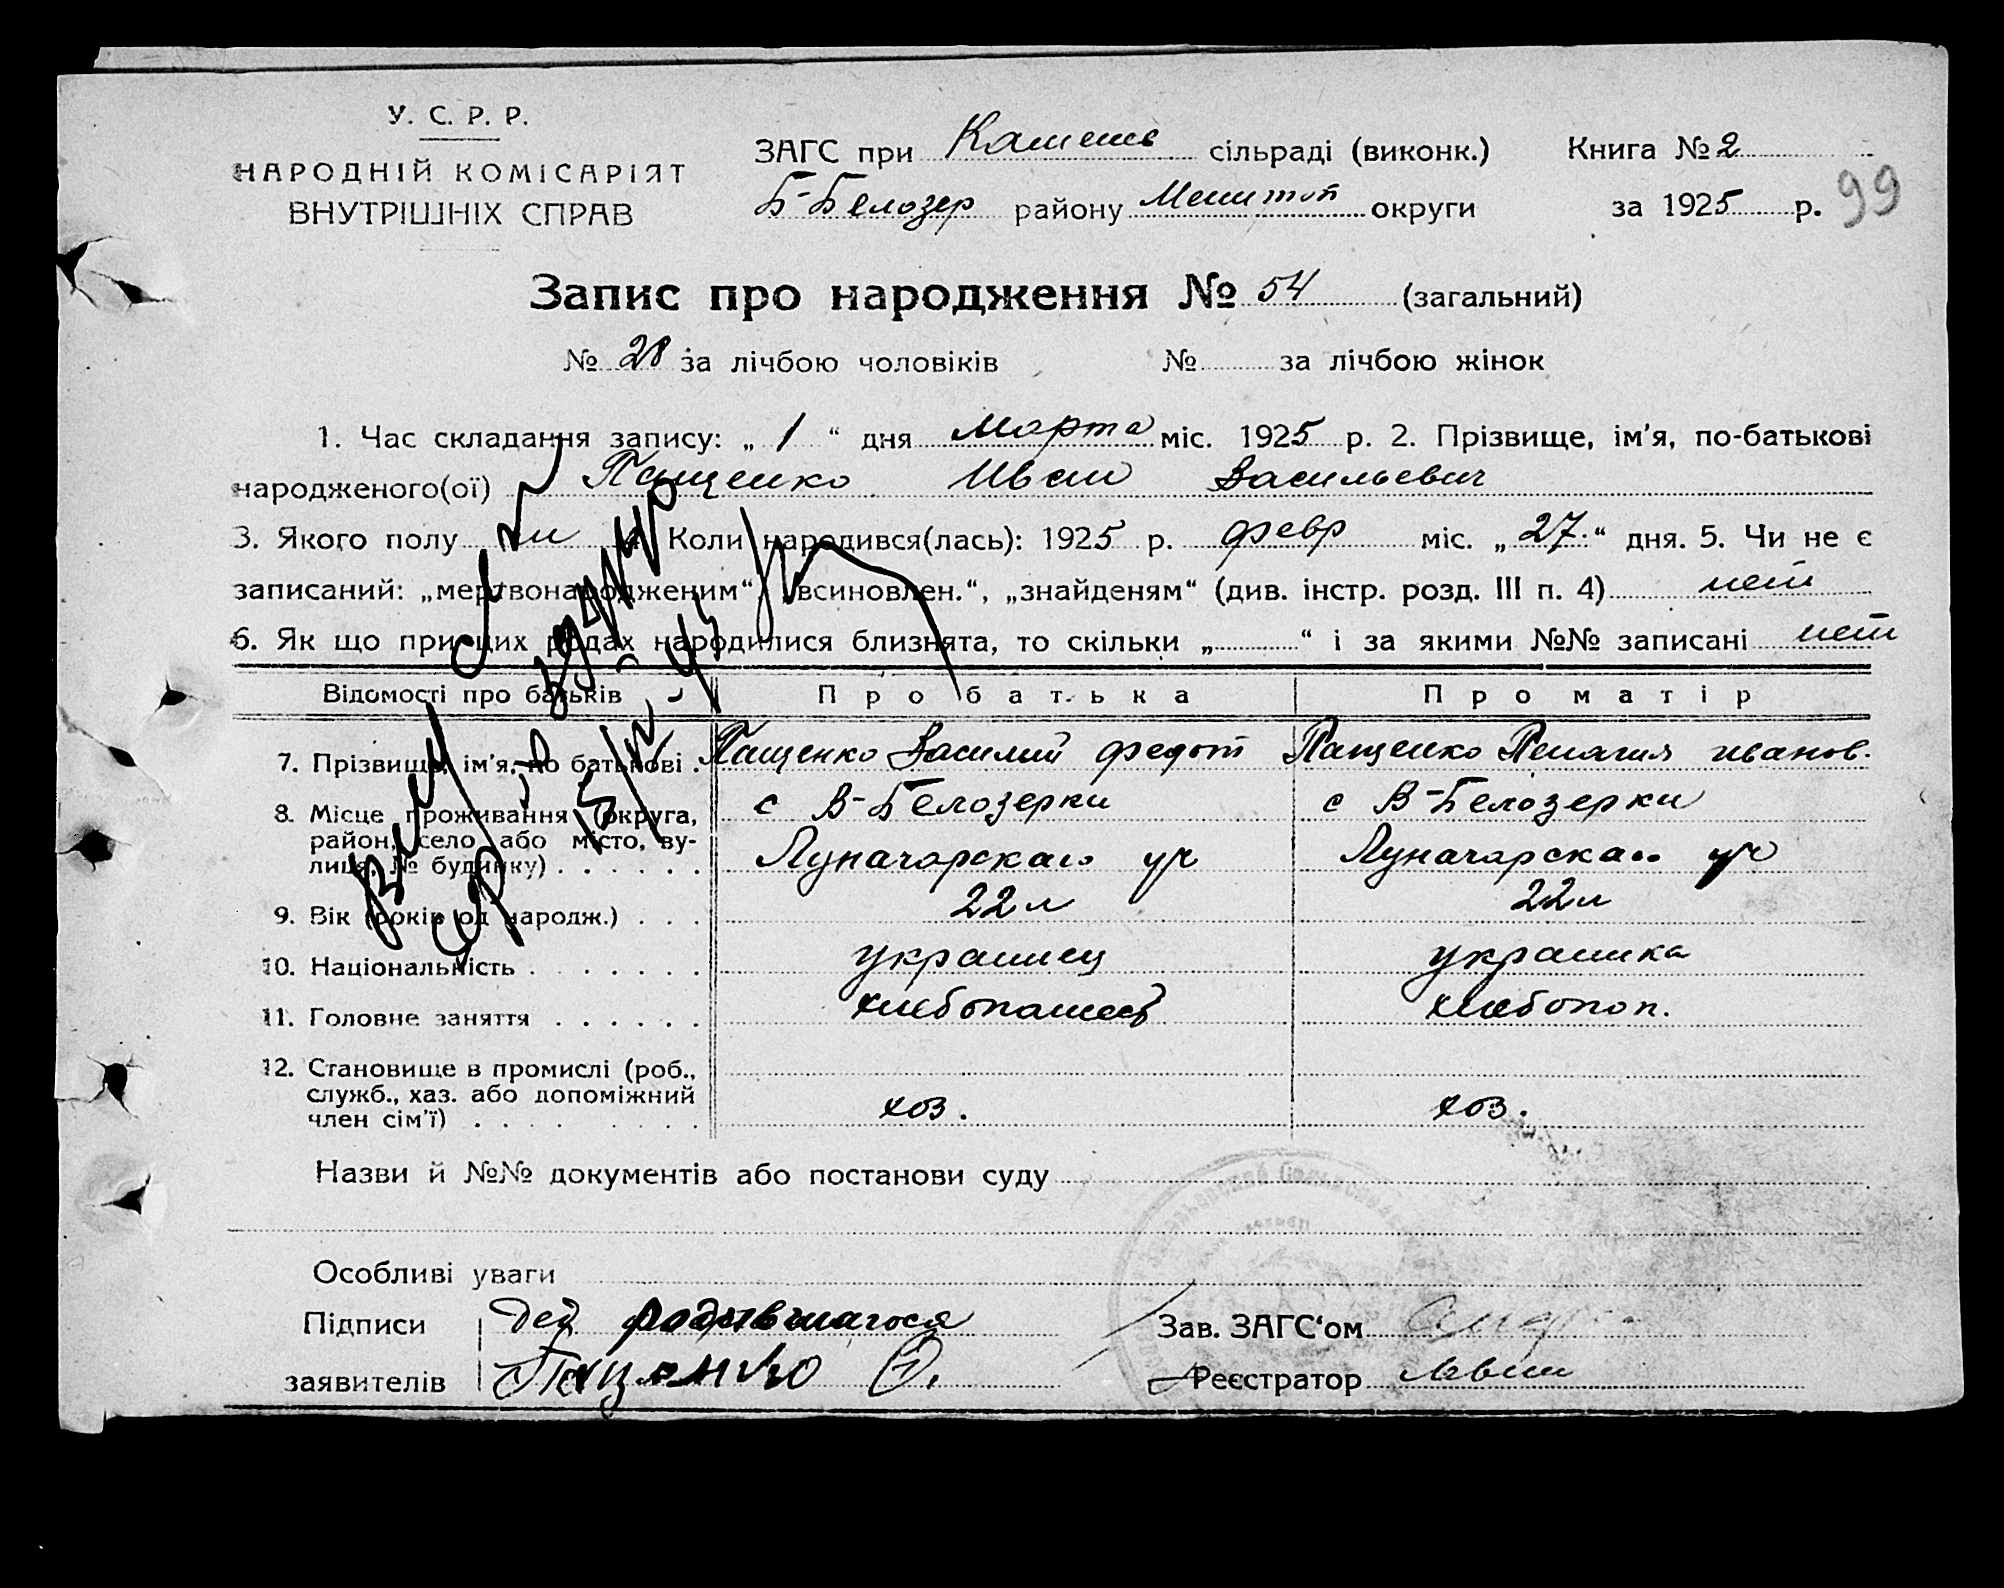 У. С. Р. Р.
НАРОДНІЙ КОМІСАРІЯТ
ВНУТРІШНІХ СПРАВ
ЗАГС при сільраді (виконк.)
Б-Белозер району округи
Книга № 2
за 1925 р. 99
Запис про народження № 54 (загальний)
№ 28 за лічбою чоловіків № за лічбою жінок
1. Час складання запису: „ 1 “ дня Марта міс. 1925 р. 2. Прізвище, ім'я, по-батькові
народженого(ої) Пащенко Иван Васильевич
3. Якого полу 4. Коли народився(лась): 1925 р. февр міс. „ 27. “ дня. 5. Чи не є
записаний: „мертвонародженим“, „всиновлен.“, „знайденям“ (див. інстр. розд. III п. 4) нет
6. Як що при цих родах народилися близнята, то скільки „ “ і за якими №№ записані нет
Відомості про батьків Про батька Про матір
7. Прізвище, ім'я, по батькові . Пащенко Василий Федот Пащенко Пелагия Иванов.
8. Місце проживання (округа, район, село або місто, вулиця, № будинку) . . . . . . с В-Белозерки с В-Белозерки
Луначарскаго уч Луначарскаго уч
9. Вік (років од народж.) . . . 22 л 22 л
10. Національність . . . . . . . украинец украинка
11. Головне заняття . . . . . . хлебопашец хлебопаш.
12. Становище в промислі (роб., служб., хаз. або допоміжний член сім'ї) . . . . хоз. хоз.
Назви й №№ документів або постанови суду
Особливі уваги
Підписи заявителів
Дед родившагося
Пащенко Ф.
Зав. ЗАГС'ом
Реєстратор